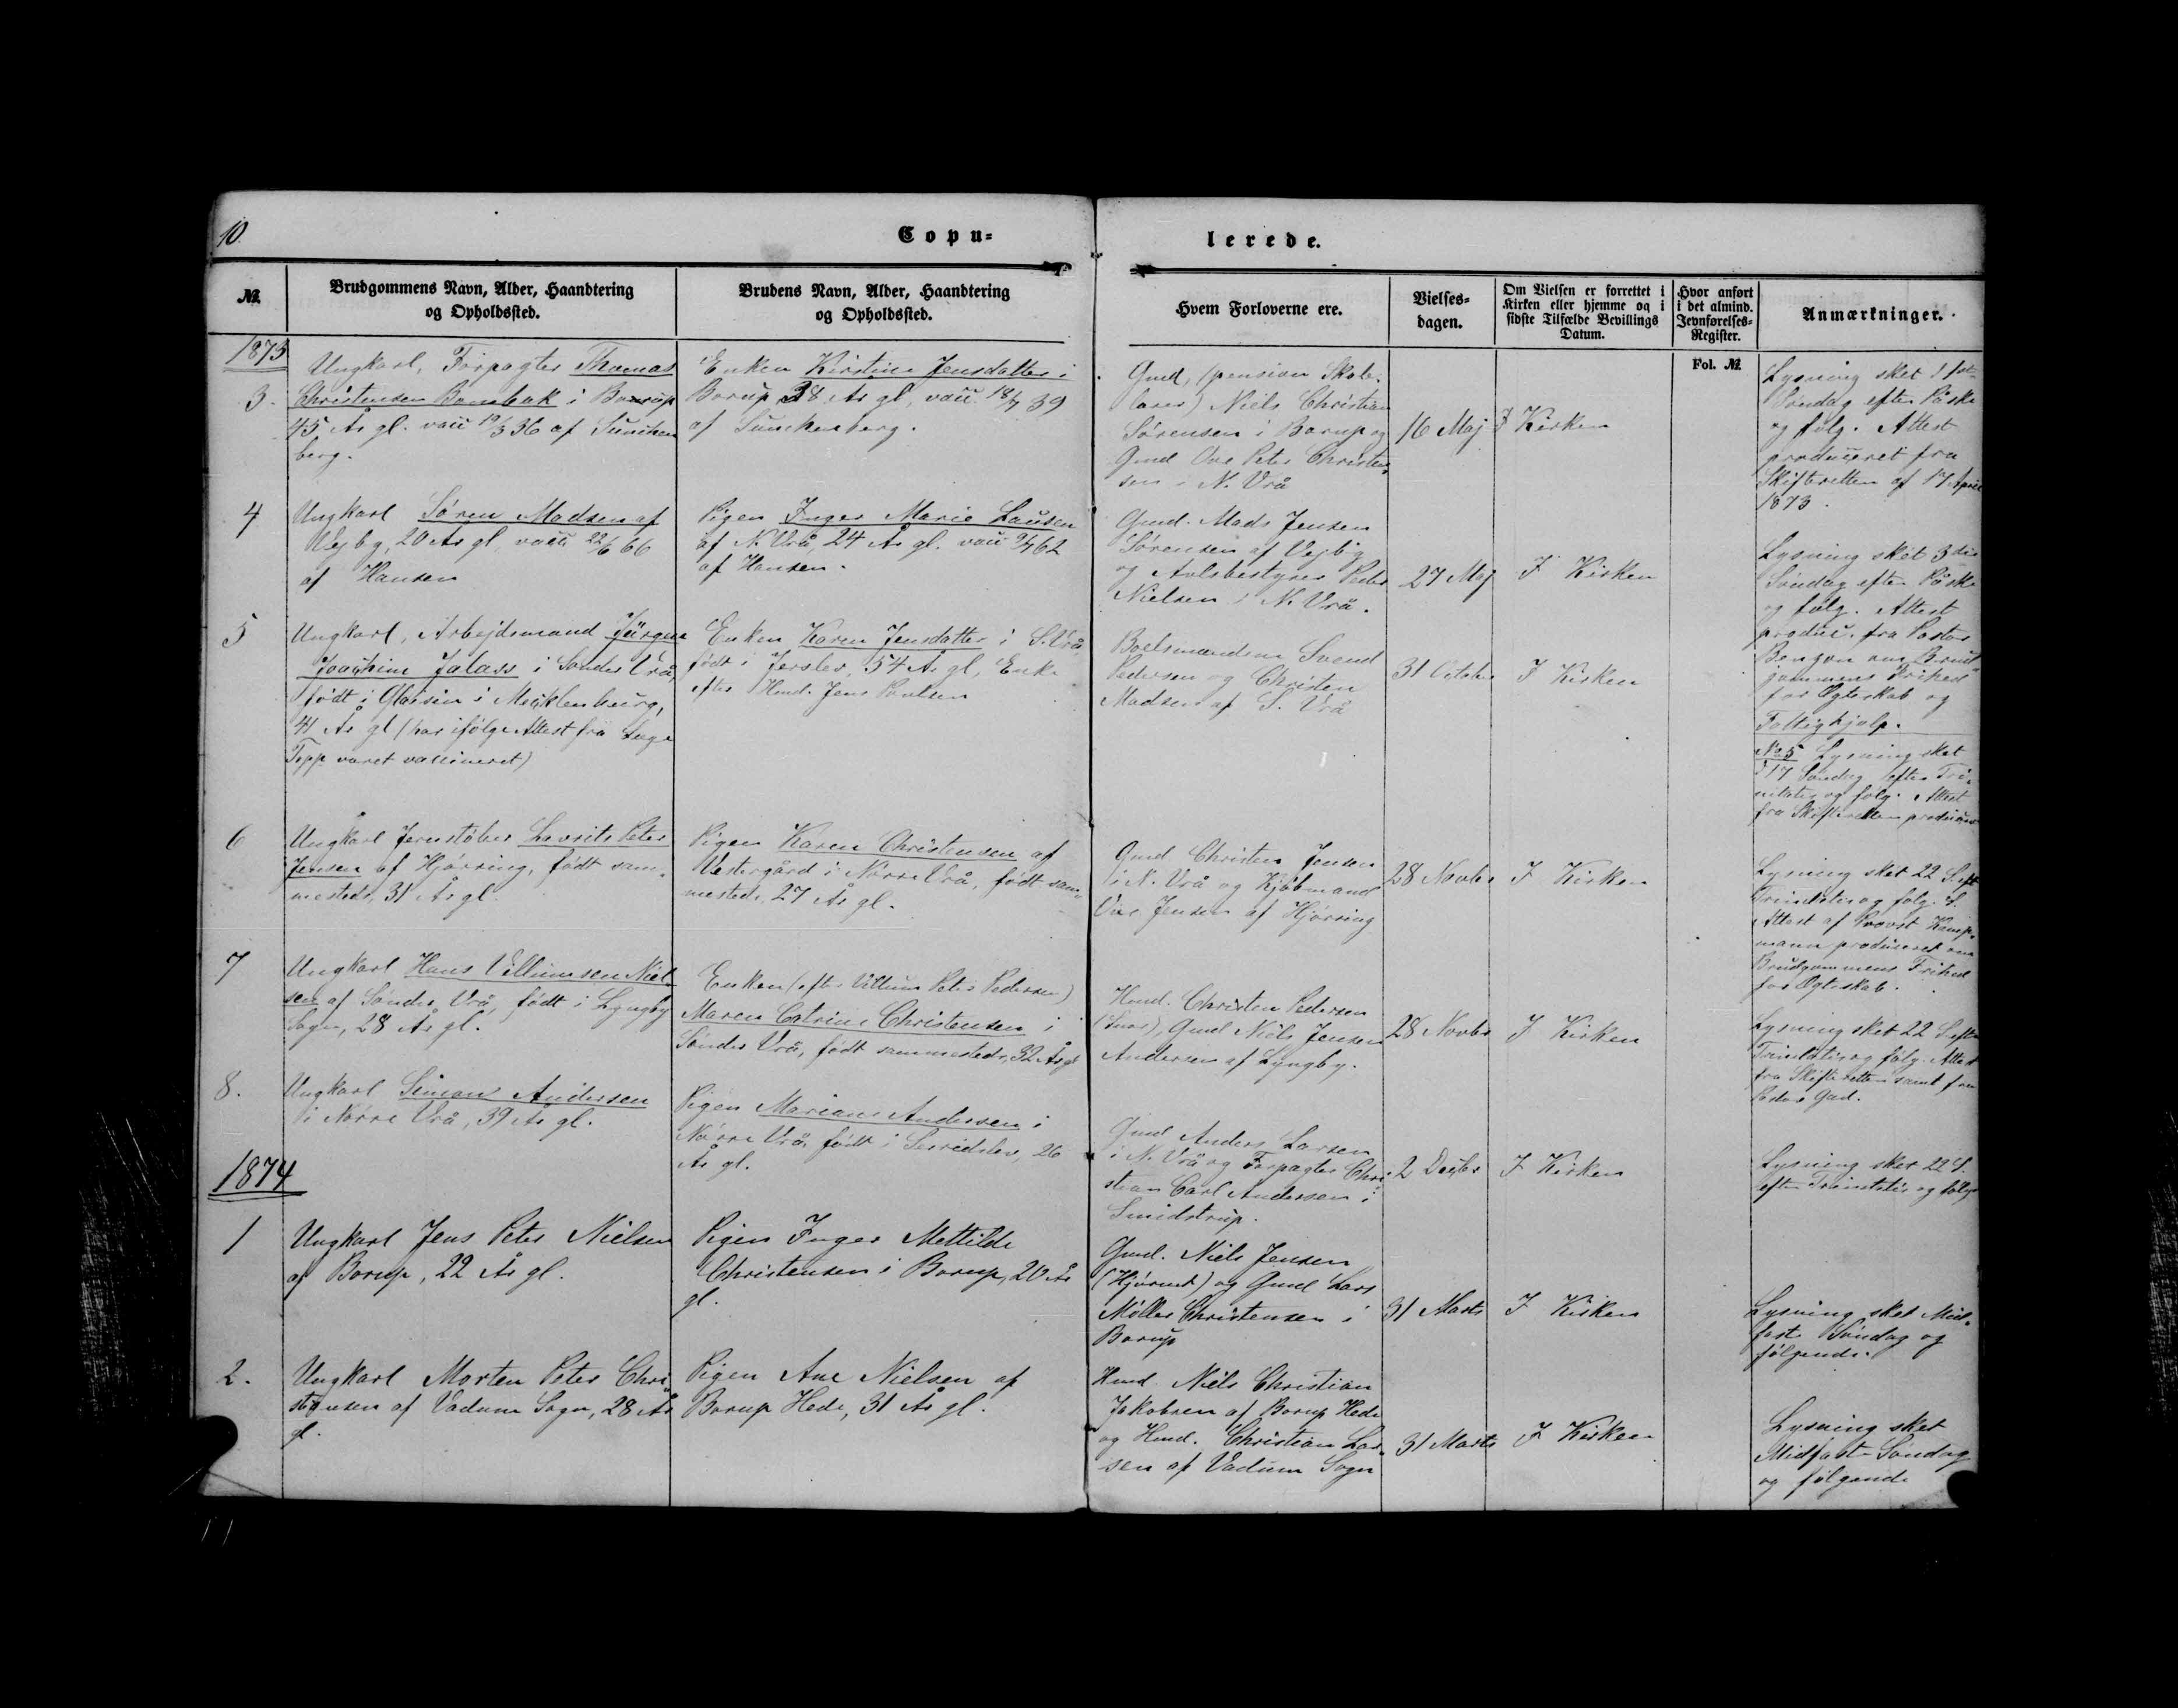 10.
Copu=
lerede.
№
Brudgommens Navn, Alder, Haandtering
og Opholdssted.
Brudens Navn, Alder, Haandtering
og Opholdssted.
Hvem Forloverne ere.
Vielses-
dagen.
Om Vielsen er forrettet i
Kirken eller hjemme og i
sidste Tilfælde Bevillings
Datum.
Hvor anført
i det almind.
Jevnførelses-
Register.
Fol. №
Anmærkninger.
1873
3.
Ungkarl, Forpagter Thomas
Christensen Bonebak i Borup
45 År gl. vacc 19/5 36 af
berg.
Enken Kirstine Jensdatter i
Borup, 38 År gl, vacc. 18/7 39
af
Gmd, (pension. Skole-
lærer) Niels Christian
Sørensen i Borup og
Gmd Ove Peter Christen-
sen i N. Vrå
16 Maj
I Kirken
Lysning sket 1ste
Søndag efter Påske
og følg. Attest
produceret fra
Skifteretten af 17 April
1873.
4
Ungkarl Søren Madsen af
Vejby, 20 År gl, vacc 22/6 66
af Hansen
Pigen Inger Marie Lausen
af N. Vrå, 24 År gl. vacc 9/7 62
af Hansen.
Gmd. Mads Jensen
Sørensen af Vejby
og Avlsbestyrer Peder
Nielsen i N. Vrå.
27 Maj
I Kirken
Lysning sket 3die
Søndag efter Påske
og følg. Attest
produc. fra Pastor
Benzon om Brud-
gommens Frihed
for Ægteskab og
Fattighjælp.
5
Ungkarl, Arbejdsmand Jürgen
Joachim Jalass i Sønder Vrå,
født i Glaisin i Mecklenburg,
41 År gl (har ifølge Attest fra Læge
Topp været vaccineret)
Enken Karen Jensdatter i S. Vrå
født i Jerslev, 54 År gl, Enke
efter Hmd. Jens Poulsen
Boelsmændene Svend
Pedersen og Christen
Madsen af S. Vrå
31 October
I Kirken
No 5 Lysning sket
17 Søndag efter Tri-
nitatis og følg. Attest
fra Skifteretten produceret
6
Ungkarl Jernstøber Lavrits Peter
Jensen af Hjørring, født sam-
mesteds, 31 År gl.
Pigen Karen Christensen af
Vestergård i Nørre Vrå, født sam-
mesteds, 27 År gl.
Gmd Christen Jensen
i N. Vrå og Kjøbmand
Ove Jensen af Hjørring
28 Novbr
I Kirken
Lysning sket 22 S. eft
Trinitatis og følg. S.
Attest af Provst Kamp-
mann produceret om
Brudgommens Frihed
for Ægteskab.
7
Ungkarl Hans Villumsen Niel-
sen af Sønder Vrå, født i Lyngby
Sogn, 28 År gl.
Enken (efter Villum Peter Pedersen)
Maren Catrine Christensen i
Sønder Vrå, født sammesteds, 32 År gl
Hmd. Christen Pedersen
Gmd Niels Jensen
Andersen af Lyngby.
28 Novbr
I Kirken
Lysning sket 22 S. efter
Trinitatis og følg. Attest
fra Skifteretten samt fra
Pastor Gad.
8.
Ungkarl Simon Andersen
i Nørre Vrå, 39 År gl.
Pigen Mariane Andersen i
Nørre Vrå, født i Serridslev, 26
År gl.
Gmd Anders Larsen
i N. Vrå og Forpagter Chri-
stian Carl Andersen i
Smidstrup.
2 Decbr
I Kirken
Lysning sket 22 S.
efter Trinitatis og følg.
1874
1
Ungkarl Jens Peter Nielsen
af Borup, 22 År gl.
Pigen Inger Mettilde
Christensen i Borup, 20 År
gl.
Gmd. Niels Jensen
og Gmd Lars
Møller Christensen i
Borup
31 Marts
I Kirken
Lysning sket Mid-
faste Søndag og
følgende.
2.
Ungkarl Morten Peter Chri-
stensen af Vadum Sogn, 28 År
gl.
Pigen Ane Nielsen af
Borup Hede, 31 År gl.
Hmd Niels Christian
Jakobsen af Borup Hede
og Hmd. Christian Lar-
sen af Vadum Sogn
31 Marts
I Kirken
Lysning sket
Midfaste Søndag
og følgende